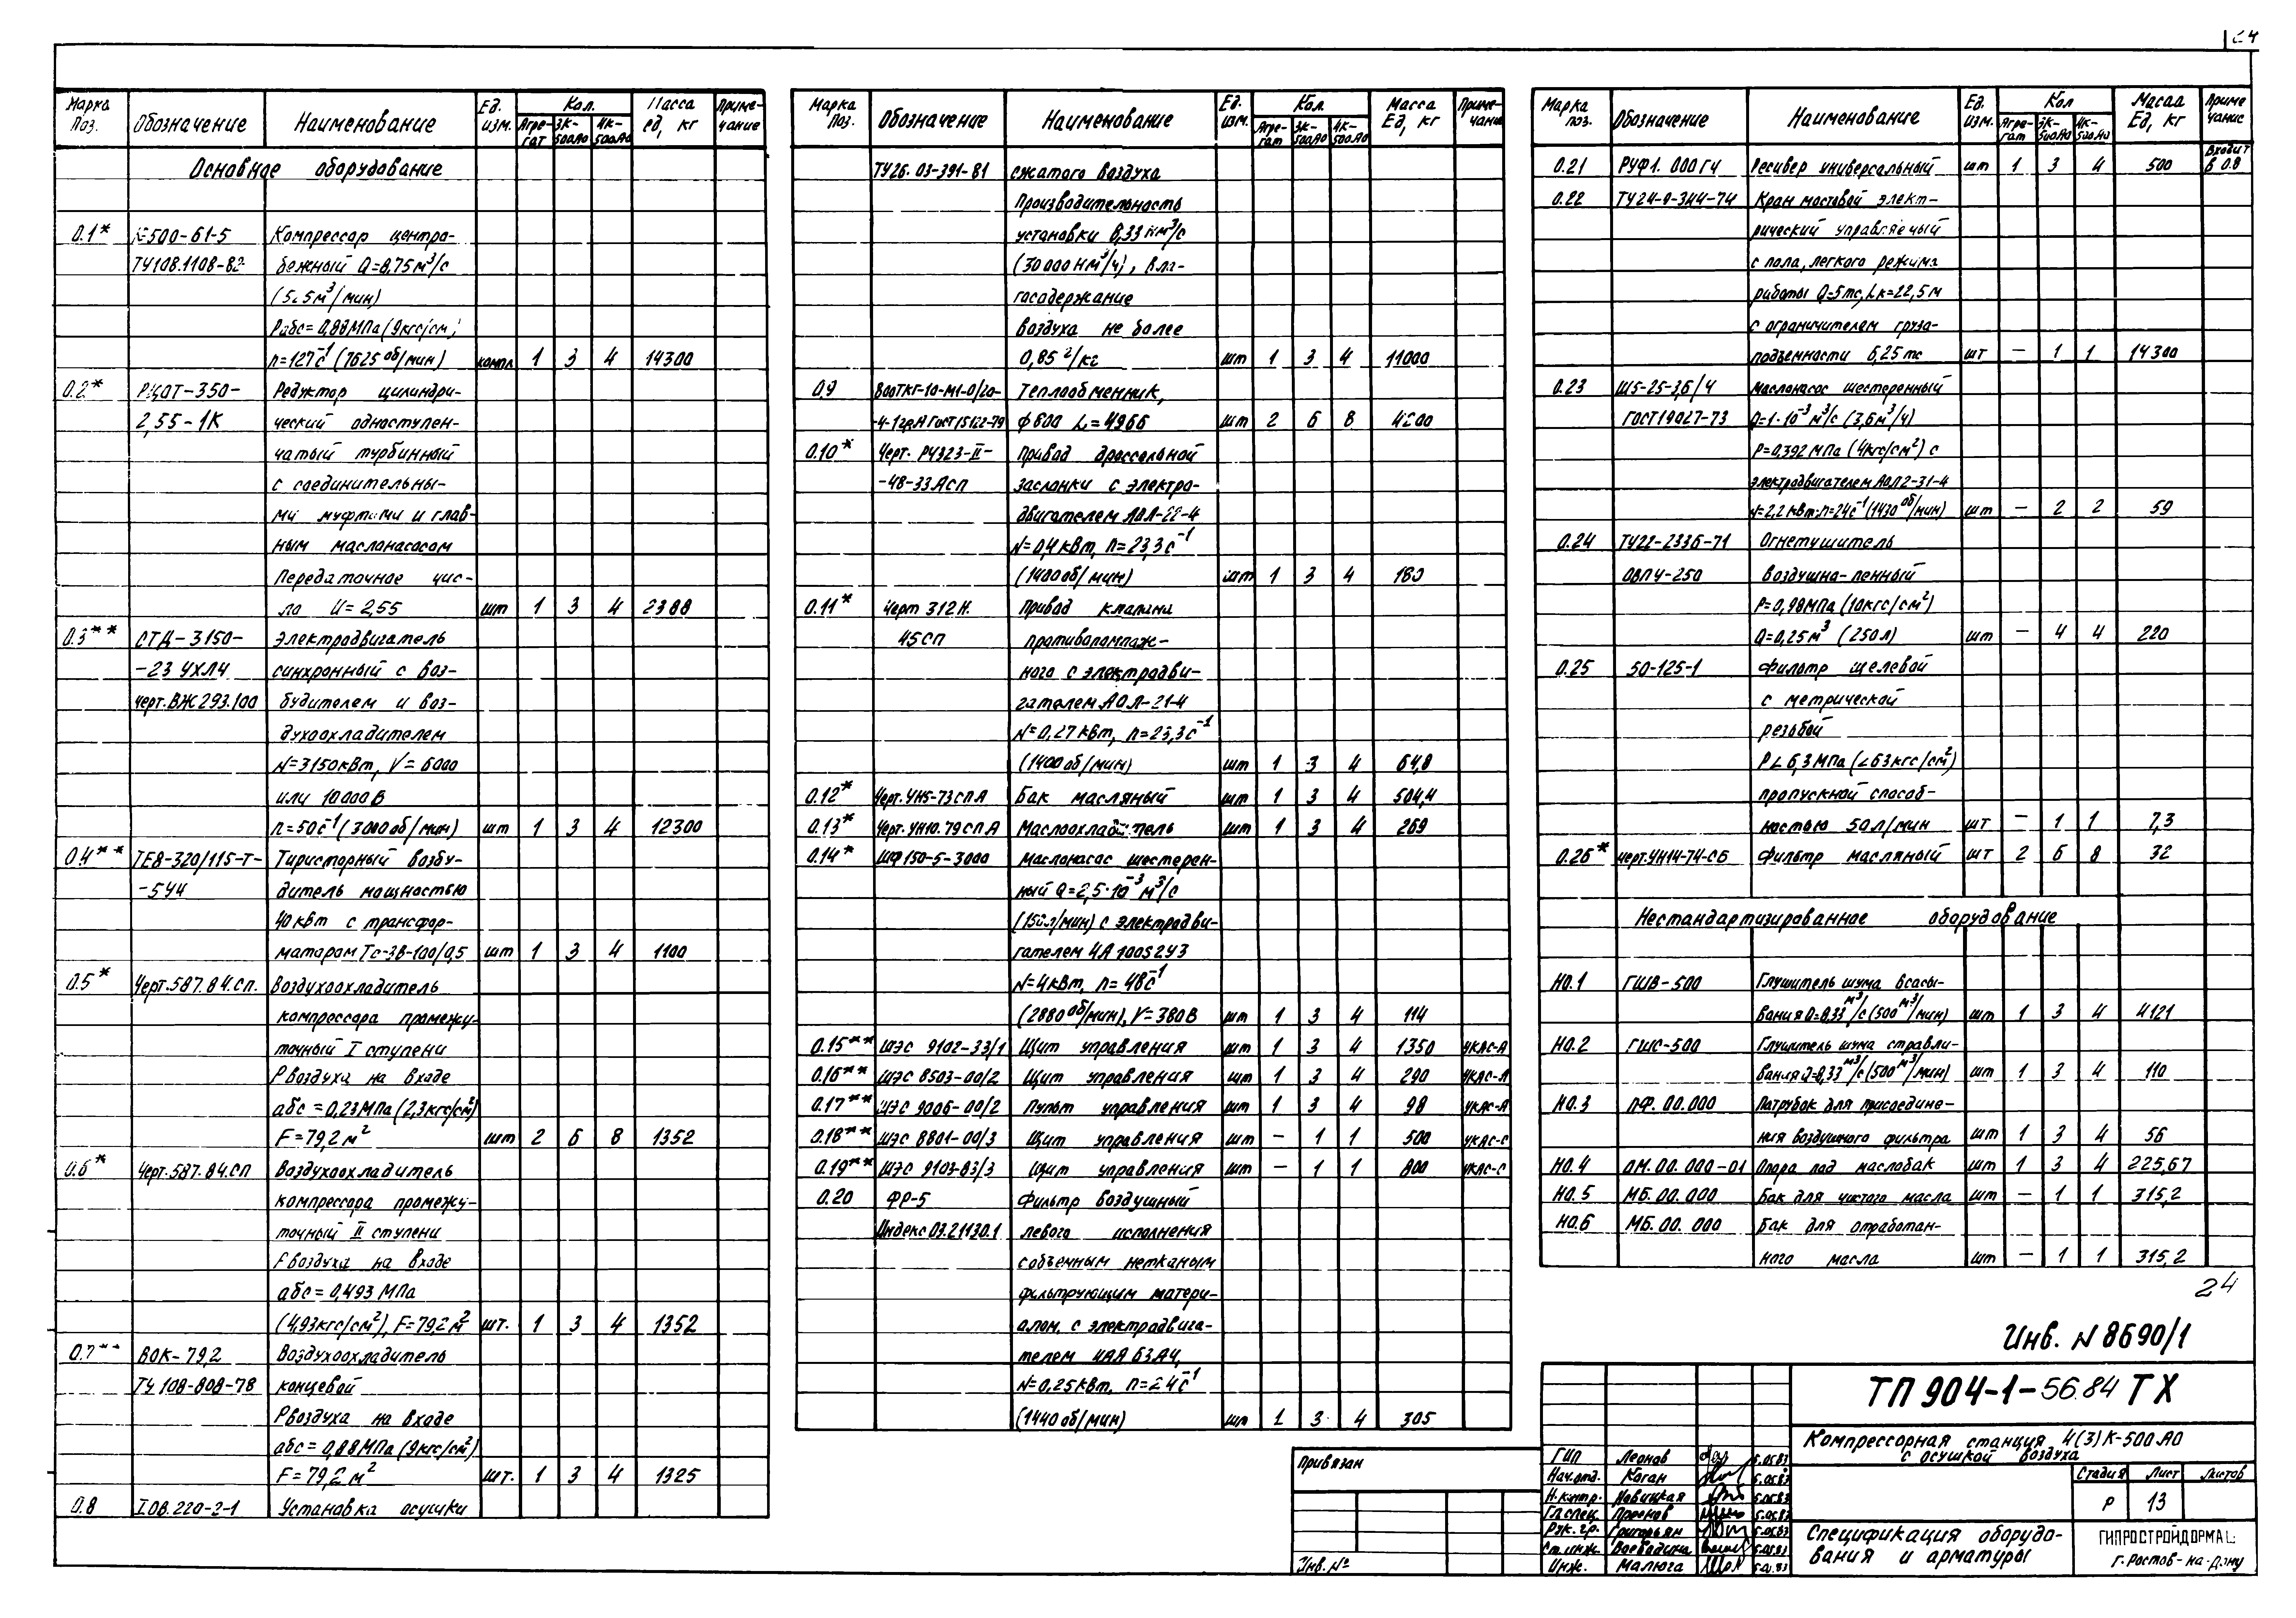 24
Марка Поз. Обозначение Наименование Ед. изм. Кол. Агрегат 3К-500АО 4К-500АО Масса ед, кг Примечание
Основное оборудование
0.1* К500-61-5 Компрессор центро-
ТУ108.1108-82 бежный Q=8,75м³/с
(525м³/мин)
Рабс=0,88МПа (9кгс/см²)
n=127с⁻¹ (7625об/мин) компл 1 3 4 14300
0.2* РЦОТ-350- Редуктор цилиндри-
2,55-1К ческий одноступен-
чатый турбинный
с соединительны-
ми муфтами и глав-
ным маслонасосом
Передаточное чис-
ло U=2,55 шт 1 3 4 2388
0.3** СТД-3150- Электродвигатель
-23 УХЛ4 синхронный с воз-
черт.ВЖ293.100 будителем и воз-
духоохладителем
N=3150кВт, V=6000
или 10000В
n=50с⁻¹ (3000об/мин) шт 1 3 4 12300
0.4** ТЕ8-320/115-Т- Тиристорный возбу-
-5У4 дитель мощностью
40кВт с трансфор-
матором ТС-ЗВ-100/0,5 шт 1 3 4 1100
0.5* Черт.587.84.сп. Воздухоохладитель
компрессора промежу-
точный I ступени
Р воздуха на входе
абс=0,23МПа (2,3кгс/см²)
F=79,2м² шт 2 6 8 1352
0.6* Черт.587.84.СП Воздухоохладитель
компрессора промежу-
точный II ступени
Р воздуха на входе
абс=0,493 МПа
(4,93кгс/см²), F=79,2м² шт. 1 3 4 1352
0.7** ВОК-79,2 Воздухоохладитель
ТУ 108-808-78 концевой
Р воздуха на входе
абс=0,88МПа (9кгс/см²)
F=79,2м² шт. 1 3 4 1325
0.8 I.ОВ.220-2-1 Установка осушки
Марка Поз. Обозначение Наименование Ед. изм. Кол. Агрегат 3К-500АО 4К-500АО Масса Ед, кг Примечание
ТУ26.03-391-81 сжатого воздуха
Производительность
установки 8,33нм³/с
(30000нм³/ч), вла-
госодержание
воздуха не более
0,85 г/кг шт 1 3 4 11000
0.9 800ТКГ-10-М1-0/20- Теплообменник,
ф800 L=4966 шт 2 6 8 4200
0.10* Черт. РУ323-II- Привод дроссельной
-48-33Асп заслонки с электро-
двигателем АОЛ-22-4
N=0,4кВт, n=23,3с⁻¹
(1400об/мин) шт 1 3 4 180
0.11* Черт 312Н. Привод клапана
45СП противопомпаж-
ного с электродви-
гателем АОЛ-21-4
N=0,27кВт, n=23,3с⁻¹
(1400об/мин) шт 1 3 4 64,8
0.12* Черт.УН5-73СПА Бак масляный шт 1 3 4 504,4
0.13* Черт.УН10.79СПА Маслоохладитель шт 1 3 4 269
0.14* ШФ150-5-3000 Маслонасос шестерен-
ный Q=2,5·10⁻³м³/с
(150л/мин) с электродви-
гателем 4А100S2У3
N=4кВт, n=48с⁻¹
(2880об/мин), V=380В шт 1 3 4 114
0.15** ШЭС 9102-33/1 Щит управления шт 1 3 4 1350 УКАС-А
0.16** ШЭС 8503-00/2 Щит управления шт 1 3 4 290 УКАС-А
0.17** ШЭС 9006-00/2 Пульт управления шт 1 3 4 98 УКАС-А
0.18** ШЭС 8801-00/3 Щит управления шт - 1 1 500 УКАС-С
0.19** ШЭС 9103-83/3 Щит управления шт - 1 1 800 УКАС-С
0.20 ФР-5 Фильтр воздушный
Индекс 03.21130.1 левого исполнения
с объемным нетканым
фильтрующим матери-
алом, с электродвига-
телем 4АА63А4,
N=0,25кВт, n=24с⁻¹
(1440об/мин) шт 1 3 4 305
Марка поз. Обозначение Наименование Ед. изм. Кол Агрегат 3К-500АО 4К-500АО Масса Ед, кг Примечание
0.21 РУФ1.000ГЧ Ресивер универсальный шт 1 3 4 500 Входит в 0.8
0.22 ТУ24-9-344-74 Кран мостовой элект-
рический управляемый
с пола, легкого режима
работы Q=5тс, Lк=22,5м
с ограничителем грузо-
подъемности 6,25тс шт - 1 1 14300
0.23 Ш5-25-3,6/4 Маслонасос шестеренный
ГОСТ19027-73 Q=1·10⁻³м³/с (3,6м³/ч)
Р=0,392МПа (4кгс/см²) с
электродвигателем АОЛ2-31-4
N=2,2кВт n=24с⁻¹ (1430об/мин) шт - 2 2 59
0.24 ТУ22-2336-71 Огнетушитель
ОВПУ-250 воздушно-пенный
Р=0,98МПа (10кгс/см²)
Q=0,25м³ (250л) шт - 4 4 220
0.25 50-125-1 Фильтр щелевой
с метрической
резьбой
Р∠6,3МПа (∠63кгс/см²)
пропускной способ-
ностью 50л/мин шт - 1 1 7,3
0.26* черт.УН14-74-СБ Фильтр масляный шт 2 6 8 32
Нестандартизированное оборудование
Н0.1 ГШВ-500 Глушитель шума всасы-
вания Q=8,33м³/с (500м³/мин) шт 1 3 4 4121
Н0.2 ГШС-500 Глушитель шума стравли-
вания Q=8,33м³/с (500м³/мин) шт 1 3 4 110
Н0.3 ПФ.00.000 Патрубок для присоедине-
ния воздушного фильтра шт 1 3 4 56
Н0.4 ОМ.00.000-01 Опора под маслобак шт 1 3 4 225,67
Н0.5 МБ.00.000 Бак для чистого масла шт - 1 1 315,2
Н0.6 МБ.00.000 Бак для отработан-
ного масла шт - 1 1 315,2
24
Инв. N 8690/1
Привязан
Инв. №
ТП 904-1-56.84 ТХ
Компрессорная станция 4(3)К-500АО
с осушкой воздуха
ГИП Леонов 5.05.83
Нач.отд. Коган 5.05.83
Н.контр. Новицкая 5.05.83
Гл.спец. 5.05.83
Рук.гр. Григорьян 5.05.83
Ст.инж. Воеводина 5.05.83
Инж. Малюга
Стадия Лист Листов
Р 13
Спецификация оборудо-
вания и арматуры
ГИПРОСТРОЙДОРМАШ
г.Ростов-на-Дону